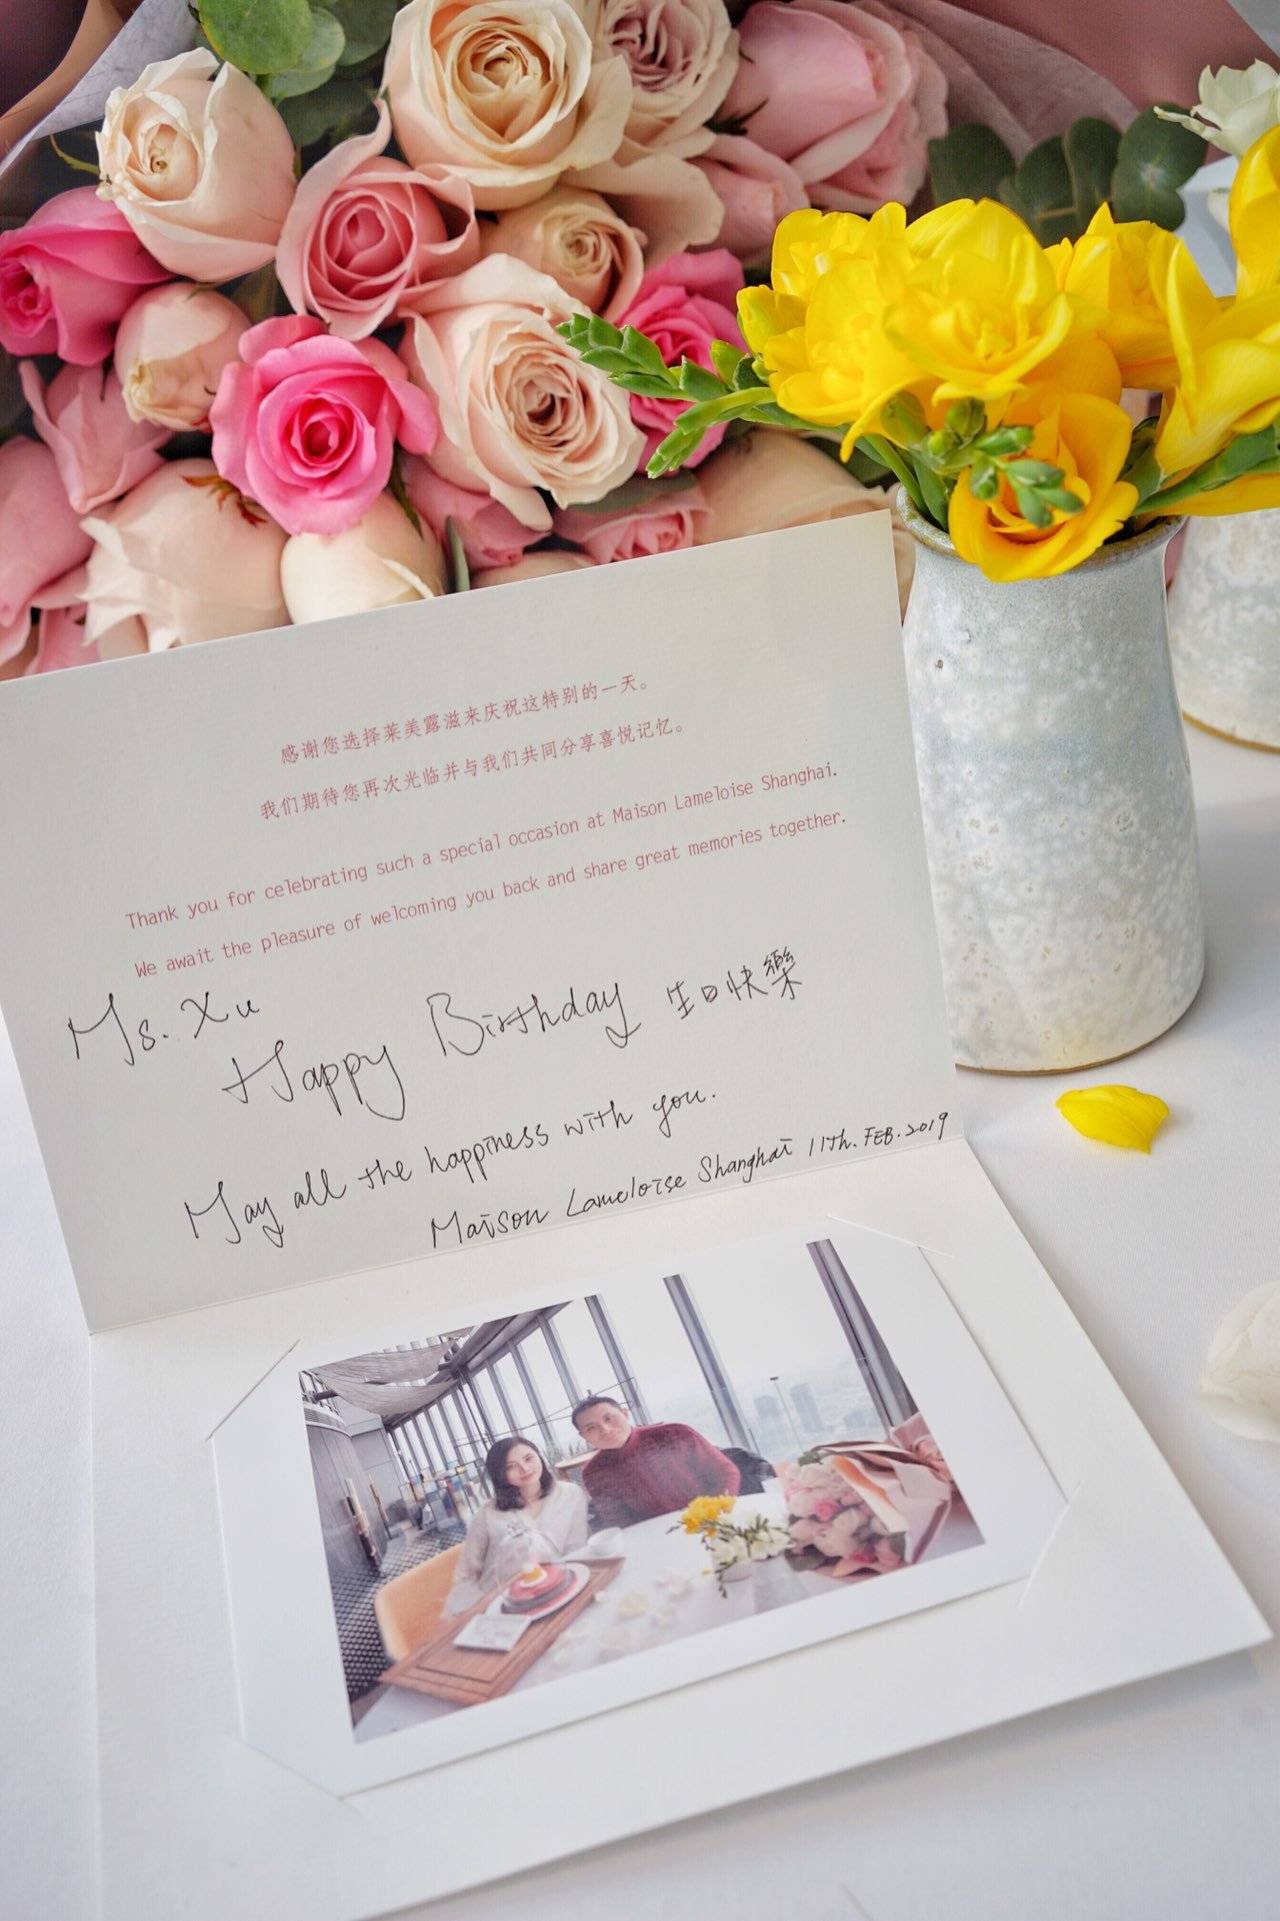 感谢您选择莱美露滋来庆祝这特别的一天。
我们期待您再次光临并与我们共同分享喜悦记忆。
Thank you for celebrating such a special occasion at Maison Lameloise Shanghai.
We await the pleasure of welcoming you back and share great memories together.
Ms. Xu
Happy Birthday 生日快樂
May all the happiness with you.
Maison Lameloise Shanghai 11th. FEB. 2019